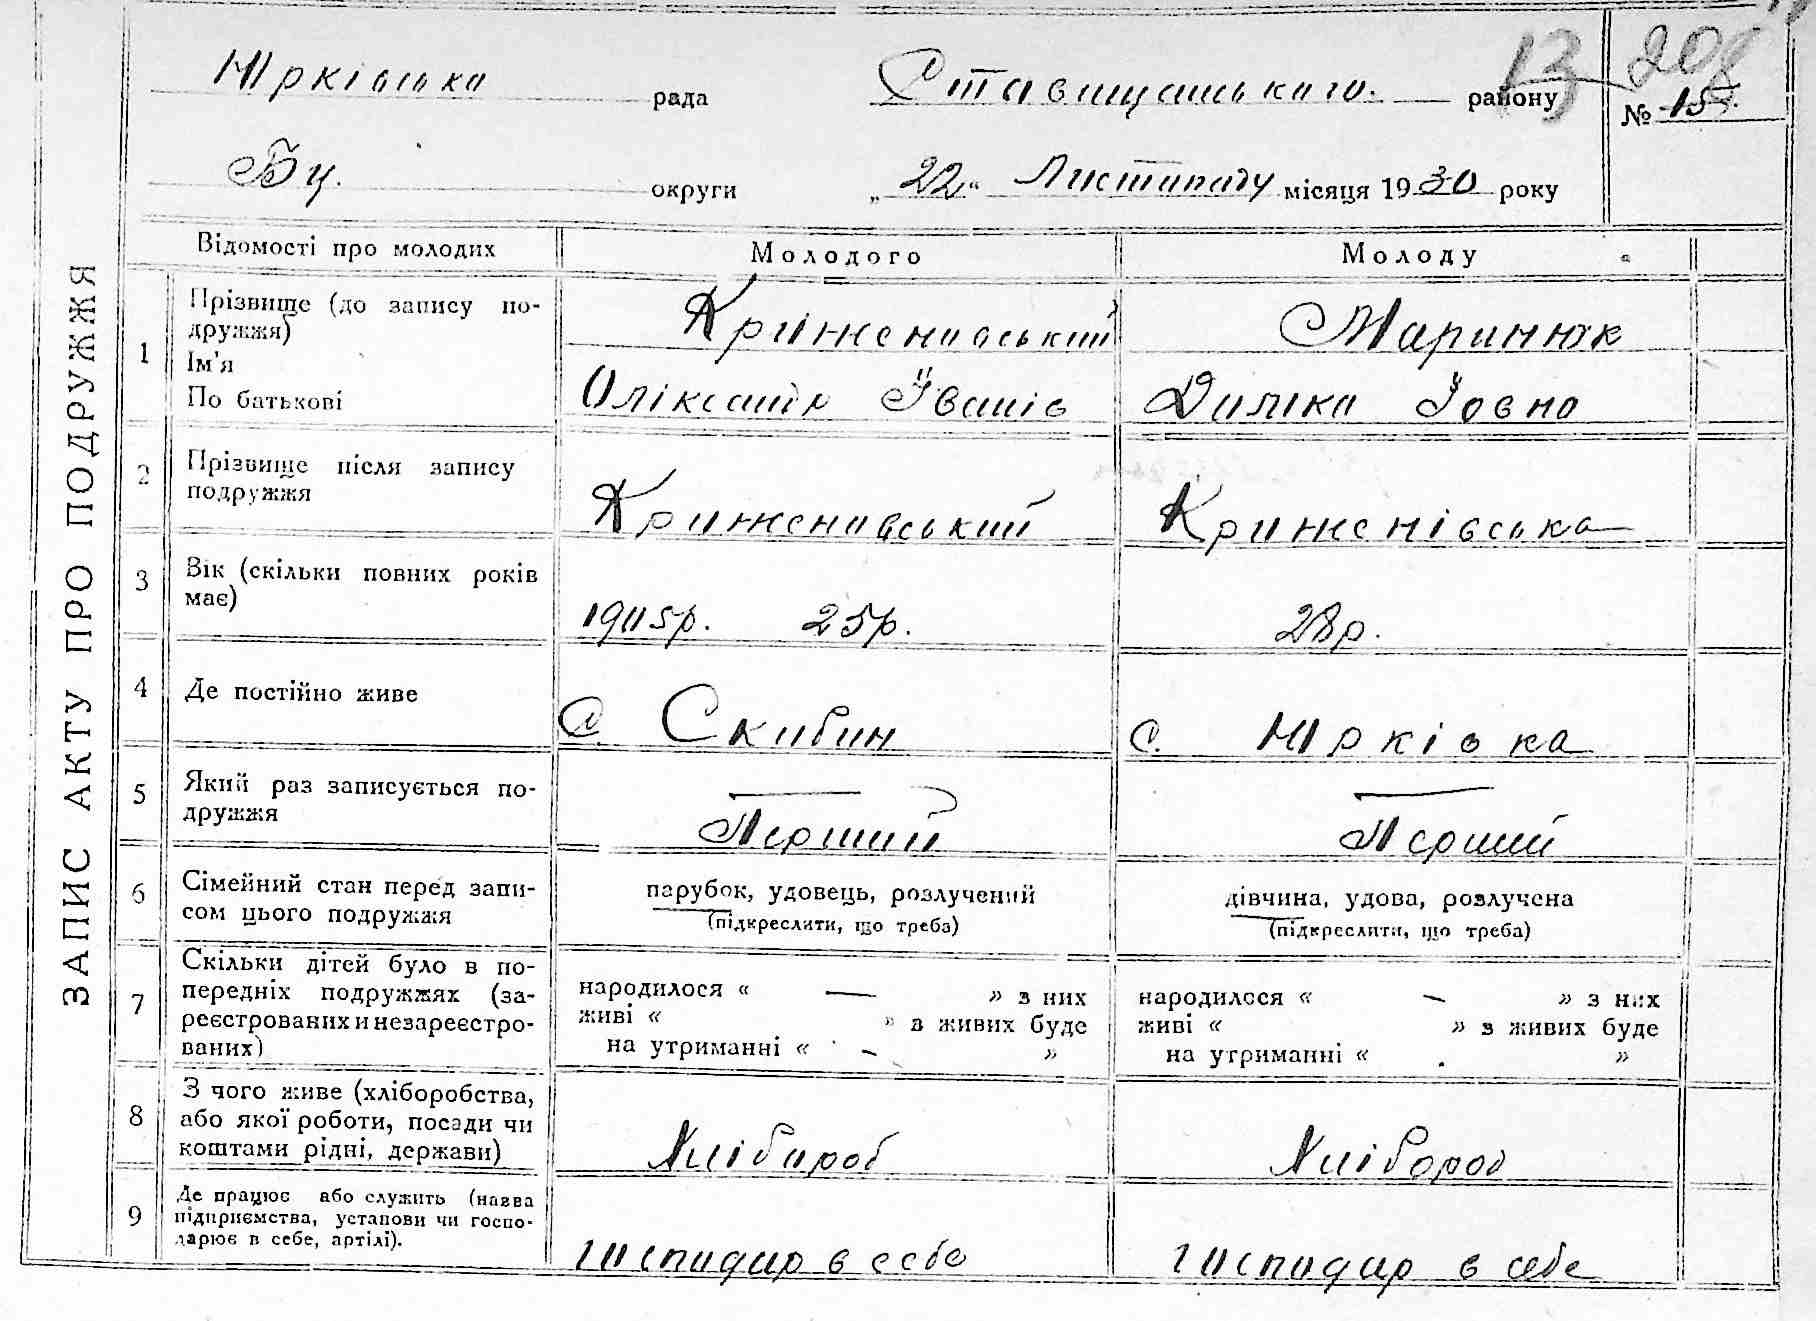 Юрківська рада Ставищанського району 13 208
№ 15
Бц. округи „22“ Листопаду місяця 1930 року
ЗАПИС АКТУ ПРО ПОДРУЖЖЯ
Відомості про молодих Молодого Молоду
1 Прізвище (до запису по-
дружжя) Криженивський Маринюк
Ім'я
По батькові Оліксандр Іванів Домка Іовна
2 Прізвище після запису
подружжя Криженивський Криженівська
3 Вік (скільки повних років
має) 1905р. 25р. 28р.
4 Де постійно живе с. Скибин с. Юрківка
5 Який раз записується по-
дружжя Перший Перший
6 Сімейний стан перед запи-
сом цього подружжя
парубок, удовець, розлучений дівчина, удова, розлучена
(підкреслити, що треба) (підкреслити, що треба)
7 Скільки дітей було в по-
передніх подружжях (за-
реєстрованих и незареєстро-
ваних)
народилося « — » з них народилося « — » з них
живі « » з живих буде живі « » з живих буде
на утриманні « - » на утриманні « . »
8 З чого живе (хліборобства,
або якої роботи, посади чи
коштами рідні, держави) Хлібороб Хлібороб
9 Де працює або служить (назва
підприємства, установи чи госпо-
дарює в себе, артілі). господар в себе господар в себе